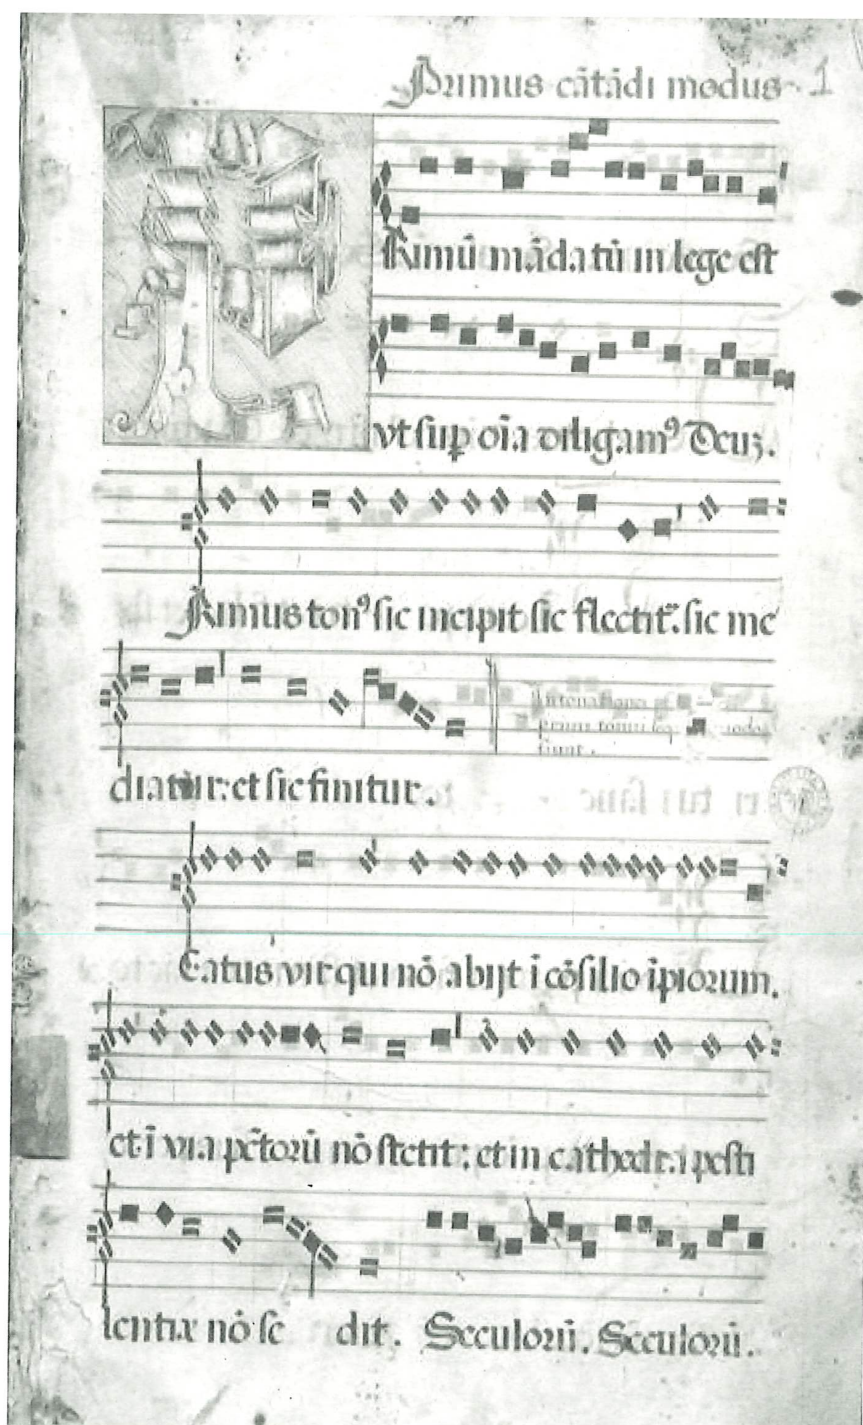 Primus cãtãdi modus 1
Rimũ mãdatũ in lege est
vt sup oĩa diligam⁹ Deuȝ.
Rimus ton⁹ sic incipit sic flectit᷑. sic me
diatur: et sic finitur.
Eatus vir qui nõ abijt ĩ cõsilio ĩpiorum.
et ĩ via pctõrũ nõ stetit: et in cathedra pesti
lentiæ nõ se dit. Seculorũ. Seculorũ.